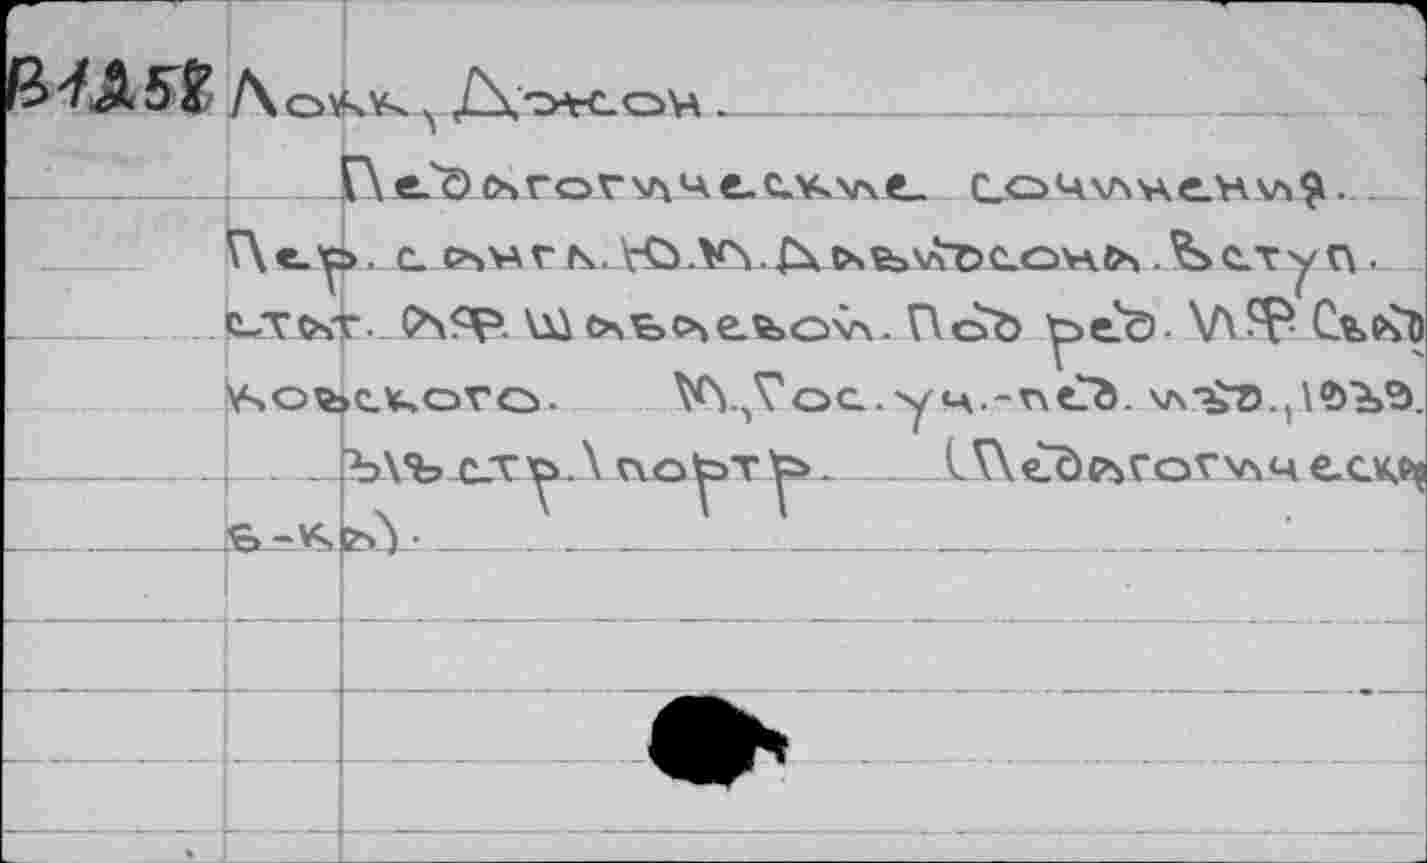 В1Д58 Локк, Джон.
Педагогические сочинения.
Пер. с англ. Ю.М. Давидсона. Вступ.
стат. и ред. Под ред. Свад
ковского. М., Гос. уч.-пед. изд., 1939.
с 1 портр. (Педагогическа
б-ка).